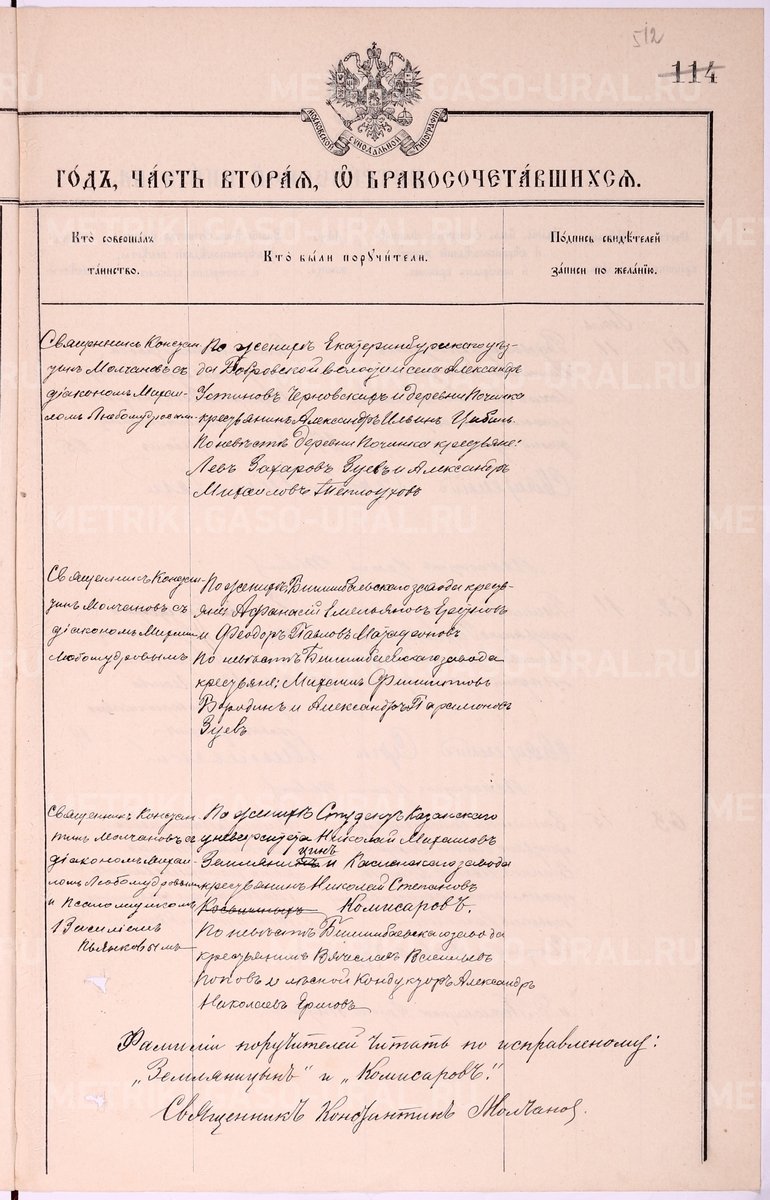 512
114
МОСКОВСКОЙ СѴНОДАЛЬНОЙ ТИПОГРАФІИ
ГОДЪ, ЧАСТЬ ВТОРАЯ, Ѿ БРАКОСОЧЕТАВШИХСЯ.
Кто совершалъ
таинство.
Кто были поручители.
Подпись свидѣтелей
записи по желанію.
Священникъ Констан-
тинъ Молчановъ съ
діакономъ Михаи-
ломъ Любомудровым
По женихѣ Екатеринбургскаго уѣз-
да волости села Александръ
Устиновъ Черновскихъ и деревни Починка
крестьянинъ Александръ Ильинъ
По невѣстѣ деревни Починка крестьяне:
Левъ Захаровъ Зуевъ и Александръ
Михаиловъ Теплоуховъ
Священникъ Констан-
тинъ Молчановъ съ
діакономъ Михаил
Любомудровымъ
По женихѣ Билимбаевскаго завода кресть-
яне Афанасій Емельяновъ
и Феодоръ Павловъ
По невѣстѣ Билимбаевскаго завода
крестьяне: Михаилъ Филиповъ
Бородинъ и Александръ Парамоновъ
Зуевъ
Священникъ Констан
тинъ Молчановъ съ
діакономъ Михаи-
ломъ Любомудровым
и Псаломщикомъ
Василіем
Пьянковымъ
По женихѣ Студентъ Казанскаго
университета Николай Михаиловъ
Земляницынъ и Каслинскаго завода
крестьянинъ Николай Степановъ
Комисаровъ.
По невѣстѣ Билимбаевскаго завода
крестьянинъ Вячеславъ Васильевъ
Поповъ и лѣсной Кондукторъ Александръ
Николаевъ Ериговъ
Фамиліи поручителей читать по исправленому:
„Земляницынъ" и „Комисаровъ".
Священникъ Константинъ Молчановъ.
METRIKI.GASO-URAL.RU